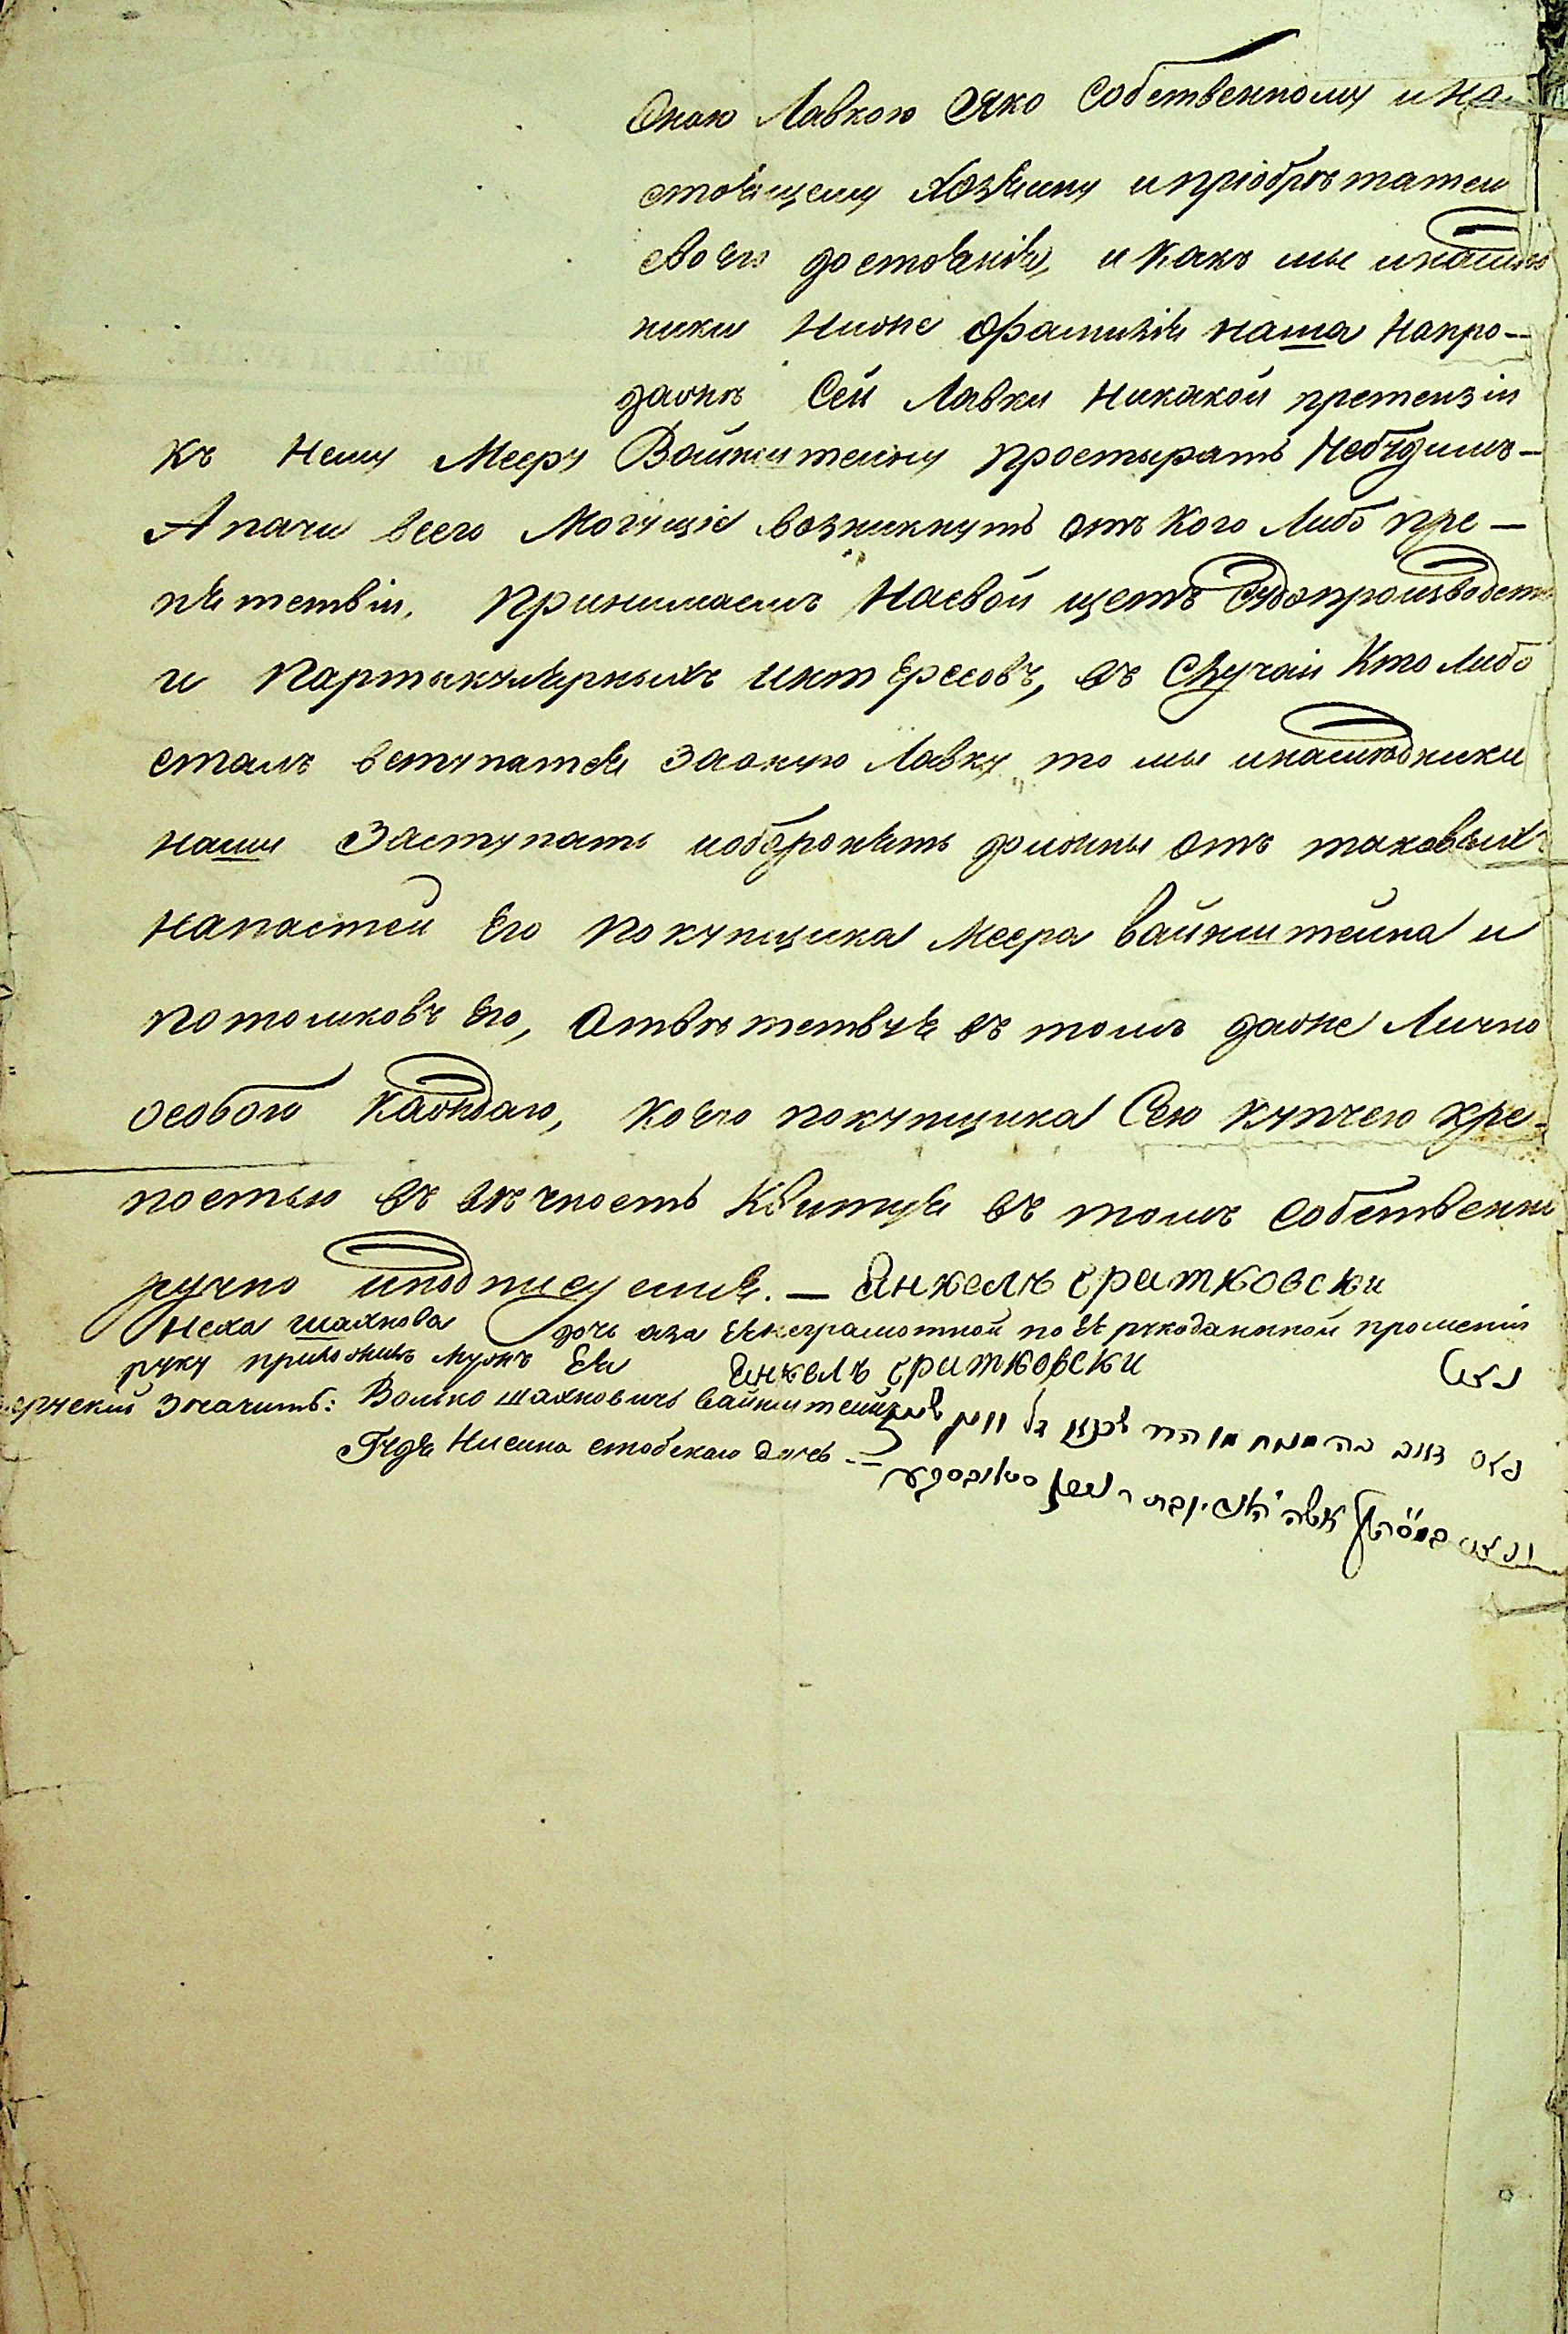 Оною Лавкою Яко Собственному и На-
стоящему Хозяину и пріобрѣтатею
своего достоянія, и Какъ мы и наслѣд
ники Ниже Фамилія наша Напро-
дажѣ Сей Лавки Никакой претензіи
Къ Нему Мееру Вайнштейну простырать Небудимъ-
А пачи всего Могущіе возникнуть отъ Кого Либо пре-
пятствіи, принимаемъ Насвой щетъ Судопроизводств
и Партыкулярныхъ интЕрессовъ, въ Случаи Кто Либо
сталъ вступатся Заоную Лавку, то мы и наслѣдники
наши Заступать иоборонять должны отъ таковыхъ
Напастей Его Покупщика Меера Вайнштейна и
Потомковъ Его, отвѣтствуя въ томъ даже Лично
особою Каждаю, Коего покупщика Сею купчею крѣ-
постью въ вѣчность Квитуя въ томъ собственно
ручно и подписуемся. — Янкель Братковски
Неха Шахнова дочь аза Ея неграмотной по Ея рукоданной прошеніи
руку приложилъ Мужъ Ея Янкель Братковски
Значитъ: Волько Шахновичъ Вайнштейнъ
Гудя Нисина стобскаю дочь